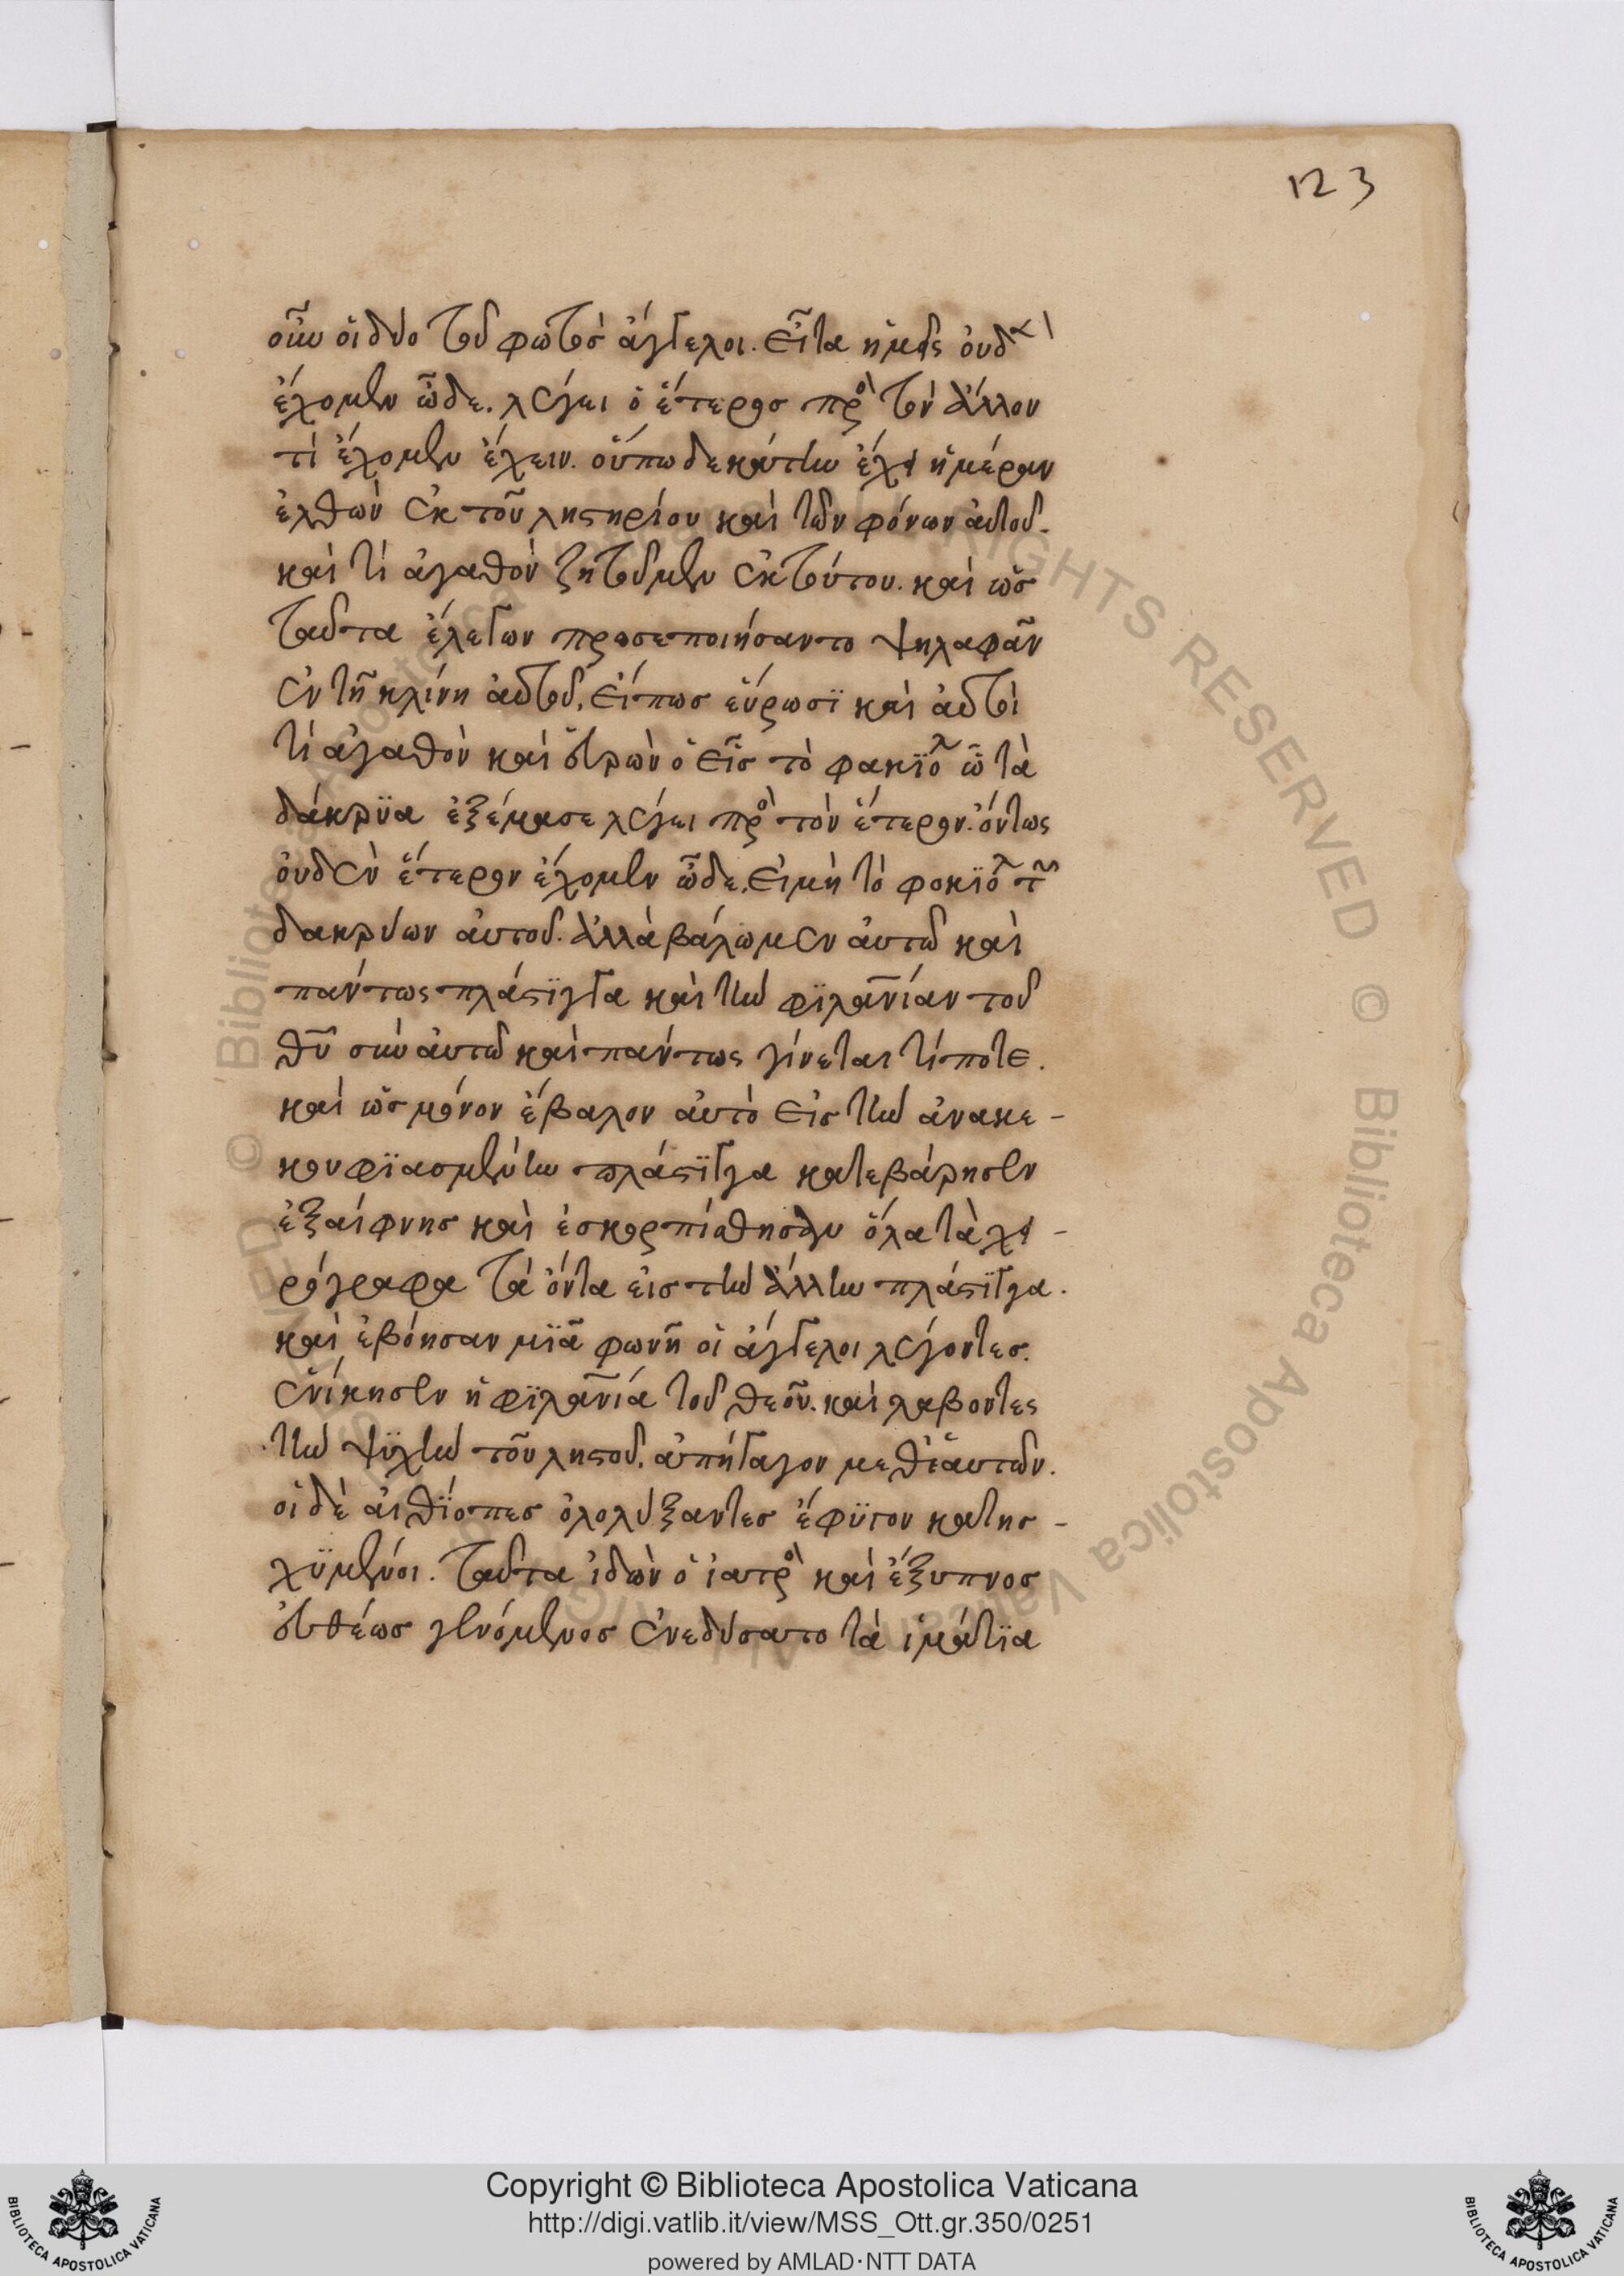 123
οὖν οἱ δύο τοῦ φωτὸσ ἄγγελοι. εἶτα ἡμεῖς οὐδὲν
ἔχομεν ὧδε. λέγει ὁ ἕτεροσ πρὸ τὸν ἄλλον
τί ἔχομεν ἔχειν. οὔπω δεκάτην ἔχει ἡμέραν
ἐλθὼν ἐκ τοῦ ληστηρίου καὶ τῶν φόνων αὐτοῦ.
καὶ τί ἀγαθὸν ζητοῦμεν ἐκ τούτου. καὶ ὡσ
ταῦτα ἔλεγον προσεποιήσαντο ψηλαφᾶν
ἐν τῆ κλίνη αὐτοῦ, εἴπωσ εὕρωσϊ καὶ αὐτοὶ
τί ἀγαθὸν καὶ εὑρὼν ὁ εἷσ τὸ φακϊόλ ὧ τὰ
δάκρϋα ἐξέμασε λέγει πρὸ τὸν ἕτερον. ὄντως
οὐδὲν ἕτερον ἔχομεν ὧδε, εἰμὴ τὸ φακϊόλ τῶν
δακρύων αὐτοῦ. ἀλλὰ βάλωμεν αὐτῶ καὶ
πάντως πλάστϊγγα καὶ τὴν φϊλανίαν τοῦ
θῦ σὺν αὐτῶ καὶ πάντως γίνεται τίποτε.
καὶ ὡσ μόνον ἔβαλον αὐτὸ εἰσ τὴν ἀνακε-
κουφϊασμένην πλάστϊγγα κατεβάρησεν
ἐξαίφνησ καὶ ἐσκορπίσθησαν ὅλα τὰ χει-
ρόγραφα τὰ ὄντα εἰσ τὴν ἄλλην πλάστϊγγα.
καὶ ἐβόησαν μϊᾶ φωνῆ οἱ ἄγγελοι λέγοντεσ.
ἐνίκησεν ἡ φϊλανία τοῦ θεοῦ. καὶ λαβοντες
τὴν ψϋχὴν τοῦ ληστοῦ, ἀπήγαγον μεθ' ἑαυτῶν.
οἱ δὲ αἰθϊόπεσ ὀλολύξαντεσ ἔφϋγον κατησ-
χϋμένοι. ταῦτα ἰδὼν ὁ ἰατρὸ καὶ ἔξυπνοσ
εὐθέωσ γενόμενοσ ἐνεδύσατο τὰ ἱμάτϊα
© Biblioteca Apostolica Vaticana ALL RIGHTS RESERVED
Copyright © Biblioteca Apostolica Vaticana
http://digi.vatlib.it/view/MSS_Ott.gr.350/0251
powered by AMLAD·NTT DATA
BIBLIOTECA APOSTOLICA VATICANA
BIBLIOTECA APOSTOLICA VATICANA